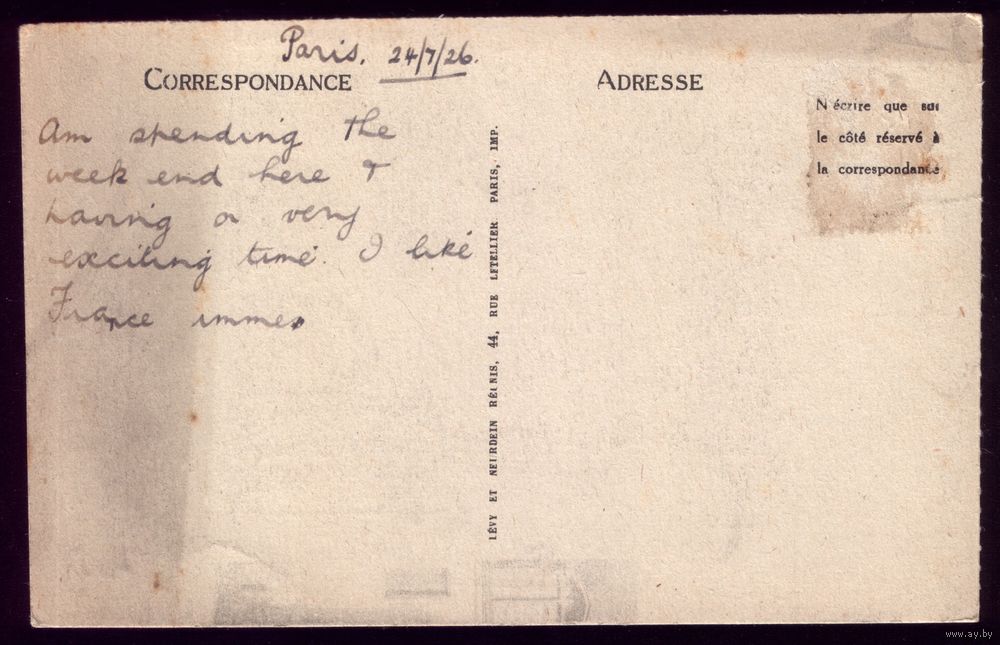 Paris. 24/7/26.
CORRESPONDANCE
Am spending the
week end here &
having a very
exciting time. I like
France immen
LÉVY ET NEURDEIN RÉUNIS, 44, RUE LETELLIER PARIS, IMP.
ADRESSE
N'écrire que sur
le côté réservé à
la correspondance
www.ay.by